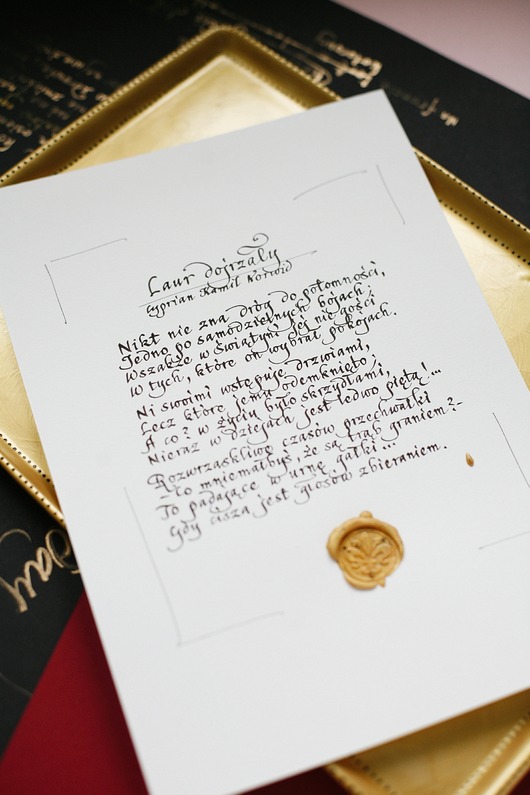 Laur dojrzały
Cyprian Kamil Norwid
Nikt nie zna dróg do potomności,
Jedno po samodzielnych bojach;
Wszakże w Świątyni jej nie gości
W tych, które on wybrał pokojach.
Ni swoimi wstępuje drzwiami,
Lecz które jemu odemknięto;
A co? w życiu było skrzydłami,
Nieraz w dziejach jest ledwo piętą!...
Rozwrzaskliwe czasów przechwałki
- Co mniemałbyś, że są trąb graniem? -
To padające w urnę gałki...
Gdy cisza jest głosów zbieraniem.
Day